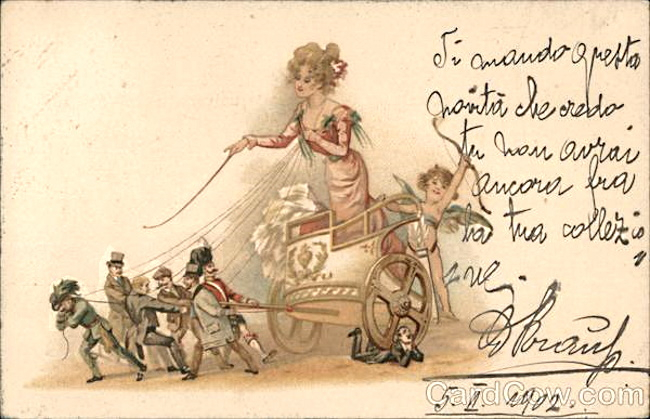 Ti mando questa
novità che credo
tu non avrai
ancora fra
la tua collezio
ne.
5. II. 1902.
CardCow.com